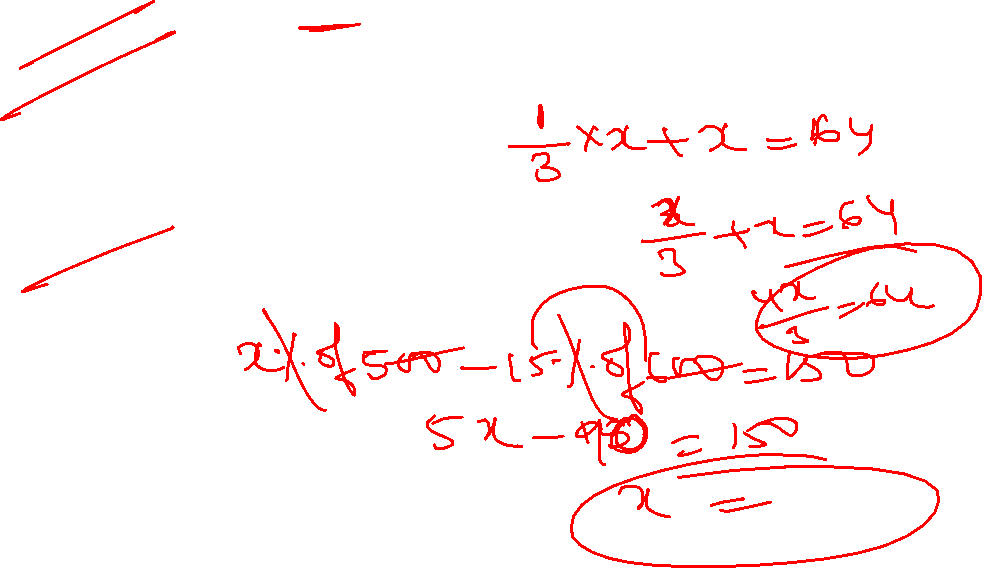 1/3 × x + x = 64
x/3 + x = 64
4x/3 = 64
x % of 500 - 15 % of 600 = 150
5x - 90 = 150
x =